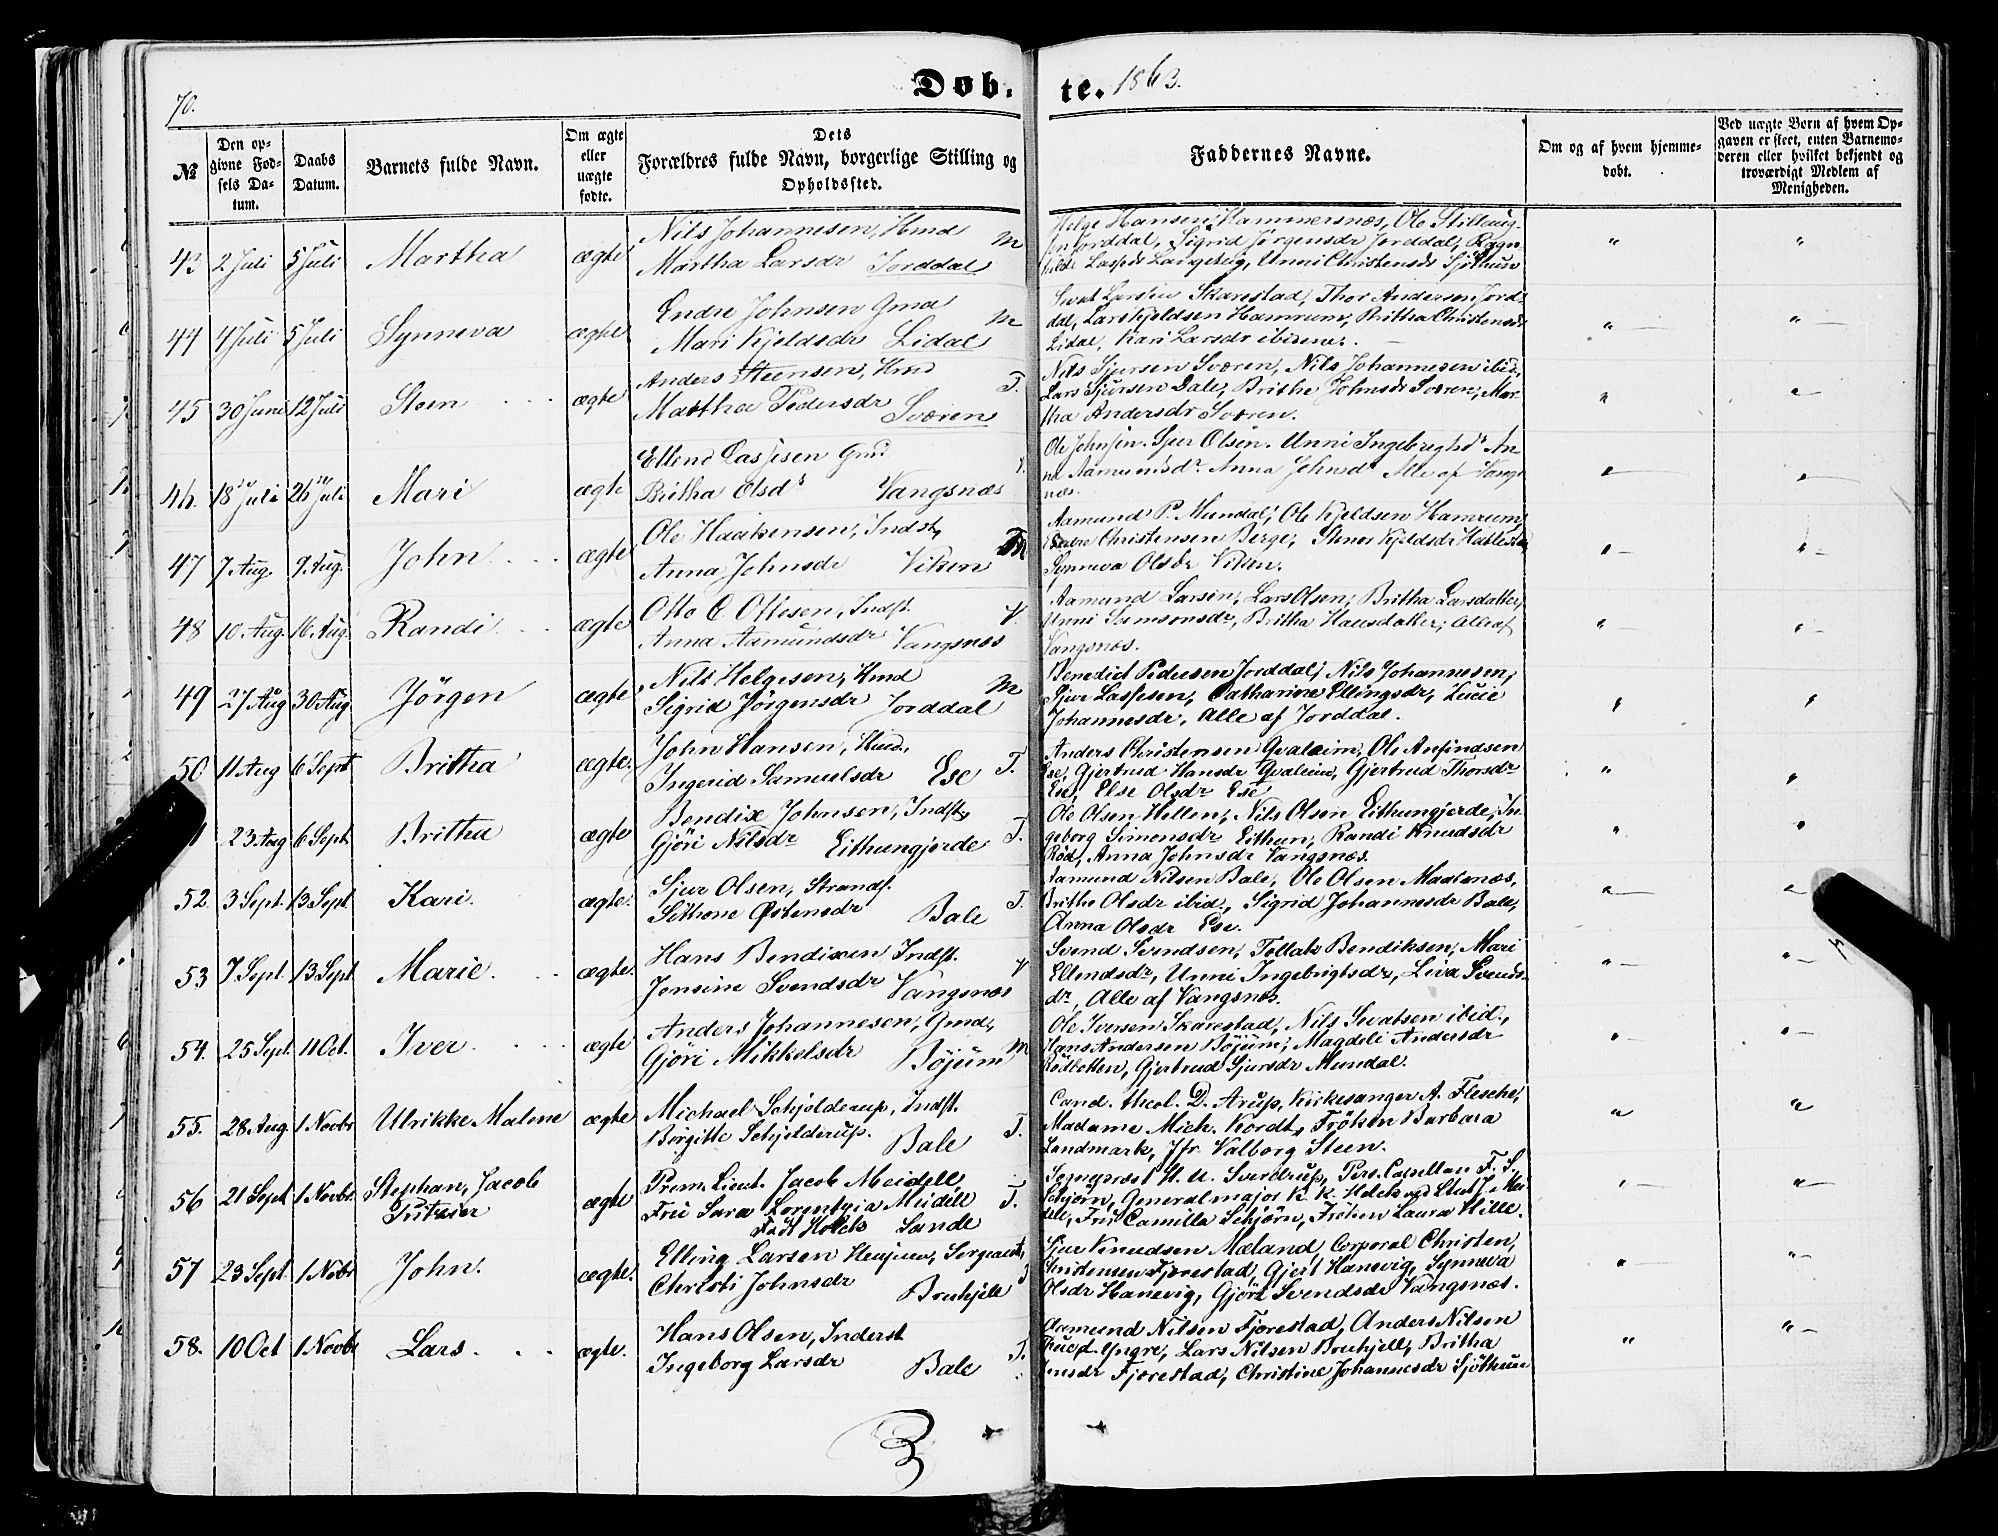 70.
Døb.
te. 1863.
№
Den opgivne Fødsels Datum.
Daabs Datum.
Barnets fulde Navn.
Om ægte eller uægte fødte.
Dets Forældres fulde Navn, borgerlige Stilling og Opholdssted.
Faddernes Navne.
Om og af hvem hjemmedøbt.
Ved uægte Børn af hvem Opgaven er skeet, enten Barnemoderen eller hvilket bekjendt og troværdigt Medlem af Menigheden.
43 2 Juli 5 Juli Martha ægte
Nils Johannesen, Hmd M
Martha Larsdr Jorddal
Helge Hansen Hammersnæs, Ole
Jorddal, Sigrid Jörgensdr Jorddal,
Unni Christensdr Sjöthun
" "
44 4 Juli 5 Juli Synneva ægte
Endre Johnsen Gmd M
Mari Kjeldsdr Lidal
Larsen Skarestad, Thor Andersen Jord-
dal, Lars Kjeldsen Hamrum, Britha Christensdr
Lidal, Kari Larsdr ibidem.
" "
45 30 Juni 12 Juli Steen ægte
Anders Steensen, Hmd T.
Martha Pedersdr Sværen
Nils Sjursen Sværen, Nils Johannesen ibid,
Lars Sjursen Dale, Brithe Johnsdr Sværen, Mar-
tha Andersdr Sværen.
" "
46. 18 Juli 26 Juli Mari ægte
Ellend Lassesen Gmd V.
Britha Olsdr Vangsnæs
Ole Johnsen. Sjur Olsen. Unni Ingebrigtsdr An-
na Aamundsdr Anna Johnsdr Alle af Vangs-
næs.
" "
47 7 Aug. 9 Aug. John ægte
Ole Haakensen, Indst M
Anna Johnsdr Viken
Aamund P. Mundal, Ole Kjeldsen Hamrum,
Christensen Berge, Kjeldsdr
Synneva Olsdr Viken.
" "
48 10 Aug. 16 Aug. Randi ægte
Otto E Ottesen, Indst. V
Anna Aamundsdr Vangsnæs
Aamund Larsen, Lars Olsen, Britha Larsdatter,
Unni Samsonsdr, Britha Hansdatter, Alle af
Vangsnæs.
" "
49 27 Aug 30 Aug Jörgen ægte
Nils Helgesen, Hmd M
Sigrid Jörgensdr Jorddal
Benedict Pedersen Jorddal, Nils Johannesen,
Sjur Lassesen, Catharine Ellingsdr, Lucie
Johannesdr, Alle af Jorddal.
" "
50 11 Aug 6 Sept Britha ægte
John Hansen, Hmd., T.
Ingerid Samuelsdr Ese
Anders Christensen Qvaleim, Ole Anfindsen
Ese, Gjertrud Hansdr Qvaleim, Gjertrud Thorsdr
Ese, Else Olsdr Ese
" "
1 23 Aug 6 Sept Britha ægte
Bendix Johnsen, Indst. T.
Gjöri Nilsdr Eithungjerde
Ole Olsen Hellen, Nils Olsen Eithungjerde, In-
geborg Simonsdr Eithun, Randi Knudsdr
Röd, Anna Johnsdr Vangsnæs.
" "
52. 3 Sept. 13 Sept Kari. ægte.
Sjur Olsen, Strands. T.
Sithone Østensdr Bale
Aamund Nilsen Bale, Ole Olsen Maalsnæs,
Britha Olsdr ibid., Sigrid Johannesdr Bale,
Anna Olsdr Ese.
" "
53 7 Sept. 13 Sept Marie. ægte.
Hans Bendixen Indst. V
Jensine Svendsdr Vangsnæs
Svend Svendsen, Tollak Bendiksen, Mari
Ellendsdr, Unni Ingebrigtsdr, Liva Svends-
dr, Alle af Vangsnæs.
" "
54. 25 Sept. 11 Oct. Iver ægte
Anders Johannesen, Gmd., M
Gjöri Mikkelsdr Böjum
Ole Iversen Skarestad, Nils Sivatsen ibid.,
Hans Andersen Böjum, Magdeli Andersdr
Rödbotten, Gjertrud Sjursdr Mundal.
" "
55. 28 Aug. 1 Novbr Ulrikke Malene ægte
Michael Schjelderup, Indst.
Birgitte Schjelderup. Bale T.
Cand. theol. D. Arup, Kirkesanger A. Flesche,
Madame Mich. Kordt, Fröken Barbara
Landmark, Jfr Valborg Steen.
" "
56 21 Sept 1 Novbr. Stephan, Jacob ægte
Prem. Lieut. Jacob Meidell, T.
Fru Sara Lorentzia Meidell
Födt Holck Sande
Sogneprest H. U. Sverdrup, Pers. Capellan F. S.
Schjörn, Generalmajor K. K. Holck ved Stud J. Mei-
dell, Fru Camilla Schjörn, Fröken Laura Hille.
" "
57 23 Sept. 1 Nvbr John. ægte.
Elling Larsen Sergeant,
Christi Johnsdr
Sjur Knudsen Mæland, Corporal Christen,
Fjærestad, Gjert Hanevig, Synneva
Olsdr Hanevig, Gjöri Svendsdr Vangsnæs.
" "
58. 10 Oct 1 Novbr Lars. ægte.
Hans Olsen, Inderst T.
Ingeborg Larsdr Bale
Aamund Nilsen Fjærestad, Anders Nilsen
d. Yngre, Lars Nilsen Britha
Fjærestad, Christine Johannesdr Sjöthun
" "